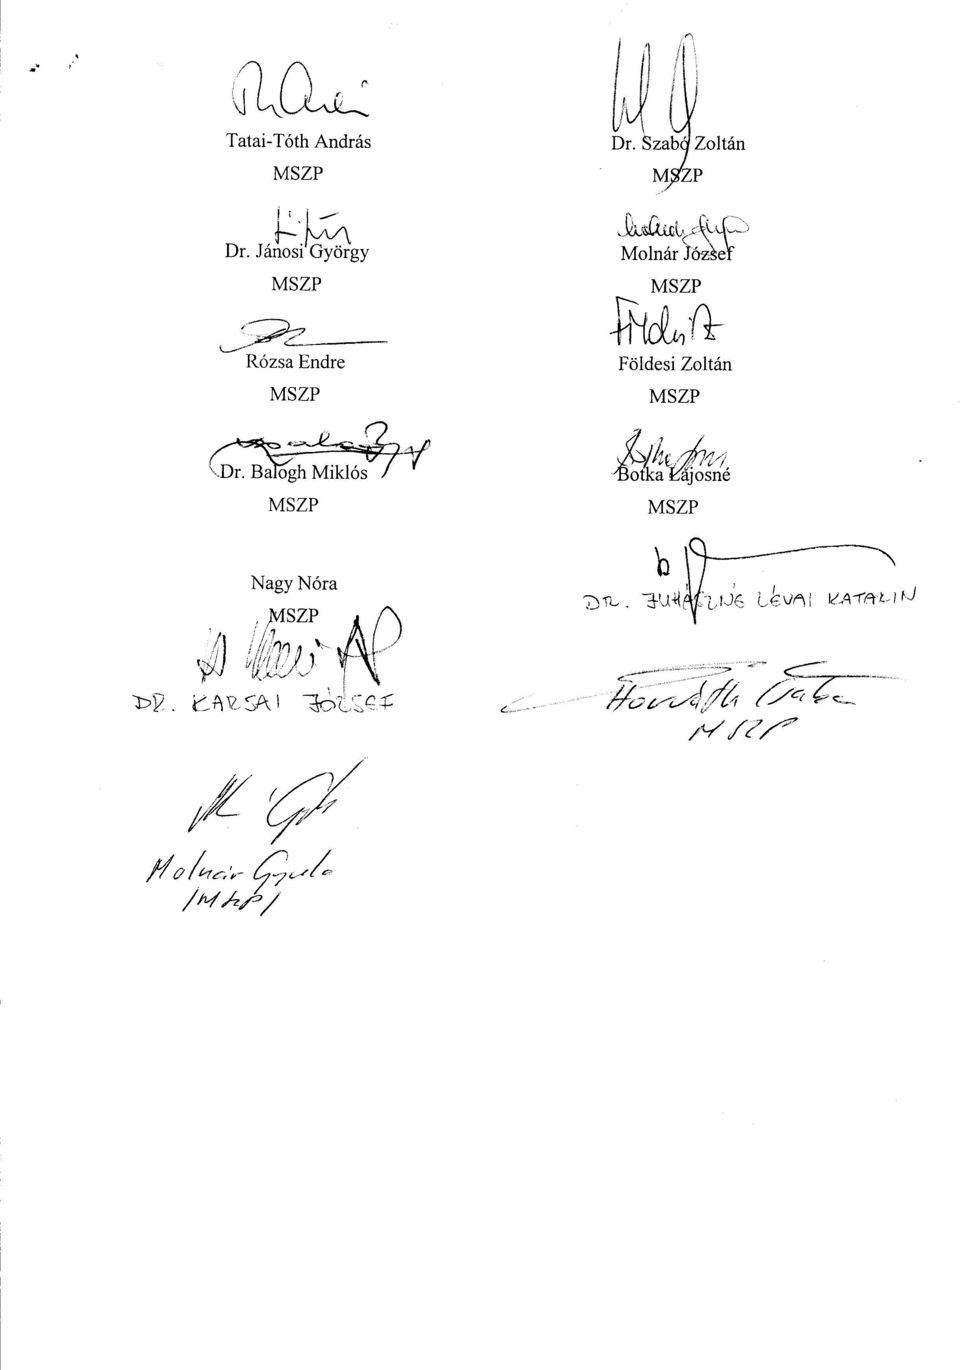 Tatai-Tóth András
MSZP
Dr. Szabó Zoltán
MSZP
Dr. Jánosi György
MSZP
Molnár József
MSZP
Rózsa Endre
MSZP
Földesi Zoltán
MSZP
Dr. Balogh Miklós
MSZP
Botka Lajosné
MSZP
Nagy Nóra
MSZP
DR. JUHÁSZNÉ LÉVAI KATALIN
DR. KARSAI JÓZSEF
Horváth Csaba
MSZP
Molnár Gyula
/MSZP/